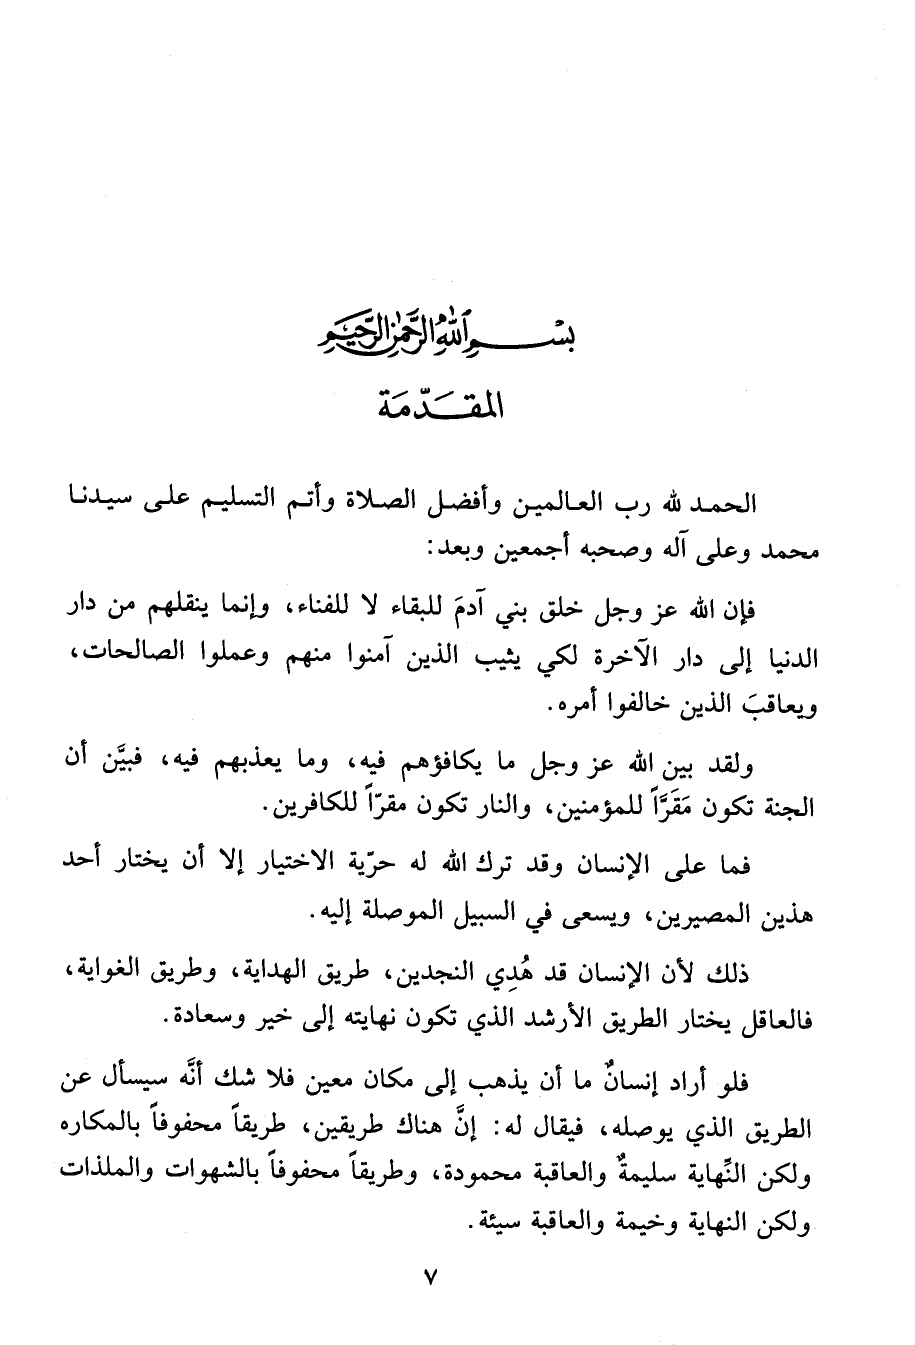 بسم الله الرحمن الرحيم
المقدّمة
الحمد لله رب العالمين وأفضل الصلاة وأتم التسليم على سيدنا
محمد وعلى آله وصحبه أجمعين وبعد:
فإن الله عز وجل خلق بني آدمَ للبقاء لا للفناء، وإنما ينقلهم من دار
الدنيا إلى دار الآخرة لكي يثيب الذين آمنوا منهم وعملوا الصالحات،
ويعاقبَ الذين خالفوا أمره.
ولقد بين الله عز وجل ما يكافؤهم فيه، وما يعذبهم فيه، فبيَّن أن
الجنة تكون مَقَرَّاً للمؤمنين، والنار تكون مقرّاً للكافرين.
فما على الإنسان وقد ترك الله له حرّية الاختيار إلا أن يختار أحد
هذين المصيرين، ويسعى في السبيل الموصلة إليه.
ذلك لأن الإنسان قد هُدِي النجدين، طريق الهداية، وطريق الغواية،
فالعاقل يختار الطريق الأرشد الذي تكون نهايته إلى خير وسعادة.
فلو أراد إنسانٌ ما أن يذهب إلى مكان معين فلا شك أنَّه سيسأل عن
الطريق الذي يوصله، فيقال له: إنَّ هناك طريقين، طريقاً محفوفاً بالمكاره
ولكن النِّهاية سليمةٌ والعاقبة محمودة، وطريقاً محفوفاً بالشهوات والملذات
ولكن النهاية وخيمة والعاقبة سيئة.
٧